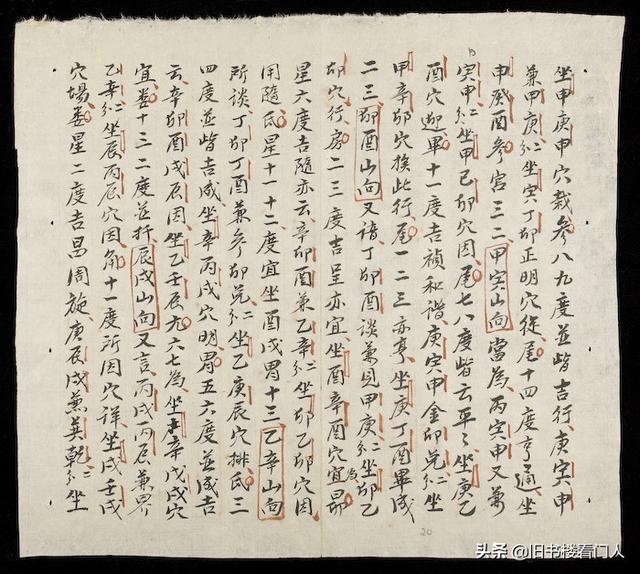 坐申庚申穴裁参八九度並皆吉行庚寅申
兼甲庚分二坐寅丁卯正明穴從尾十四度亨通坐
申癸酉參宮三二甲寅山向當為丙寅申又兼
寅申分二坐甲己卯穴因尾七八度皆云平々坐庚乙
酉穴迎畢十一度吉禎和諧庚寅申金卯兑分二坐
甲辛卯穴挨此行尾一二三亦亨坐庚丁酉畢成
二三卯酉山向又諸丁卯酉談兼見甲庚分二坐卯乙
卯穴行房二三度吉呈亦宜坐酉辛酉穴宜為昴
星六度吉隨亦云辛卯酉兼乙辛分二坐卯乙卯穴因
用隨氐星十一十二度宜坐酉戊胃十三乙辛山向
所談丁卯丁酉兼參卯兑分二坐乙庚辰穴排氐三
四度並皆吉成坐辛丙戌穴明胃五六度並成吉
云辛卯酉戌辰因坐乙壬辰亢六七為坐辛戊戌穴
宜娄十三二度並扦辰戌山向又言丙戌丙辰兼界
乙辛分二坐辰丙辰穴因角十一度所因穴詳坐戌壬戌
穴場娄星二度吉昌周施庚辰戌兼巽乾分二坐
20
头条@旧书楼看门人